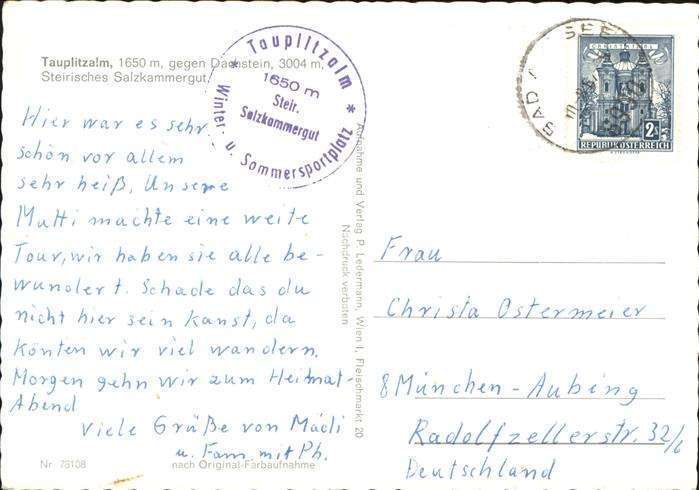 Tauplitzalm, 1650 m, gegen Dachstein, 3004 m,
Steirisches Salzkammergut,
* Tauplitzalm *
1650 m
Steir.
Salzkammergut
Winter- u. Sommersportplatz
Hier war es sehr
schön vor allem
sehr heiß, Unsere
Mutti machte eine weite
Tour, wir haben sie alle be-
wundert. Schade das du
nicht hier sein kanst, da
könten wir viel wandern.
Morgen gehn wir zum Heimat-
Abend
Viele Grüße von Mädi
u. Fam. mit Ph.
Nr. 78108
nach Original-Farbaufnahme
Aufnahme und Verlag P. Ledermann, Wien I, Fleischmarkt 20
Nachdruck verboten
SEE
2S
REPUBLIK ÖSTERREICH
Frau
Christa Ostermeier
8 München - Aubing
Radolfzellerstr. 32/6
Deutschland